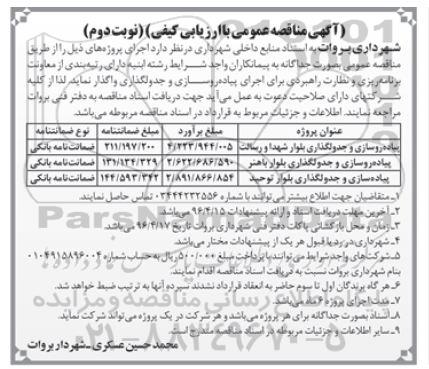 (آگهی مناقصه عمومی با ارزیابی کیفی) (نوبت دوم)
شهرداری بروات به استناد منابع داخلی شهرداری در نظر دارد اجرای پروژه‌های ذیل را از طریق
مناقصه عمومی بصورت جداگانه به پیمانکاران واجد شرایط رشته ابنیه دارای رتبه‌بندی از معاونت
برنامه‌ریزی و نظارت راهبردی برای اجرای پیاده‌روسازی و جدولگذاری واگذار نماید. لذا از کلیه
شرکتهای دارای صلاحیت دعوت به عمل می‌آید جهت دریافت اسناد مناقصه به دفتر فنی بروات
مراجعه نمایند. اطلاعات و جزئیات مربوط به قرارداد در اسناد مناقصه مربوطه می‌باشد.
عنوان پروژه مبلغ برآورد مبلغ ضمانتنامه نوع ضمانتنامه
پیاده‌روسازی و جدولگذاری بلوار شهدا و رسالت ۴/۲۲۳/۹۴۴/۰۰۵ ۲۱۱/۱۹۷/۲۰۰ ضمانت‌نامه بانکی
پیاده‌روسازی و جدولگذاری بلوار باهنر ۲/۶۲۲/۶۸۶/۵۹۰ ۱۳۱/۱۳۴/۳۲۹ ضمانت‌نامه بانکی
پیاده‌سازی و جدولگذاری بلوار توحید ۲/۸۹۱/۸۶۶/۸۵۴ ۱۴۴/۵۹۳/۳۴۲ ضمانت‌نامه بانکی
۱ـ متقاضیان جهت اطلاع بیشتر می‌توانند با شماره ۰۳۴۴۴۲۳۲۵۵۶ تماس حاصل نمایند.
۲ـ آخرین مهلت دریافت اسناد و ارائه پیشنهادات ۹۶/۴/۱۵ می‌باشد.
۳ـ زمان و محل بازگشائی پاکات دفتر فنی شهرداری بروات تاریخ ۹۶/۴/۱۷ می‌باشد.
۴ـ شهرداری در رد یا قبول هر یک از پیشنهادات مختار می‌باشد.
۵ـ شرکت‌های واجد شرایط می‌توانند با پرداخت مبلغ ۵۰۰/۰۰۰ ریال به حساب شماره ۰۱۰۴۹۱۵۸۹۶۰۰۴
بنام شهرداری بروات نسبت به دریافت اسناد مناقصه اقدام نمایند.
۶ـ هر گاه برندگان اول تا سوم حاضر به انعقاد قرارداد نشدند سپرده آنها به ترتیب ضبط خواهد شد.
۷ـ مدت اجرای پروژه ۶ ماه می‌باشد.
۸ـ اسناد بصورت جداگانه برای هر پروژه می‌باشد و هر شرکت در یک پروژه می‌تواند شرکت نماید.
۹ـ سایر اطلاعات و جزئیات مربوطه در اسناد مناقصه مندرج است.
محمدحسین عسکری ـ شهردار بروات
۰۲۱-۸۸۳۴۹۶۷۰-۵